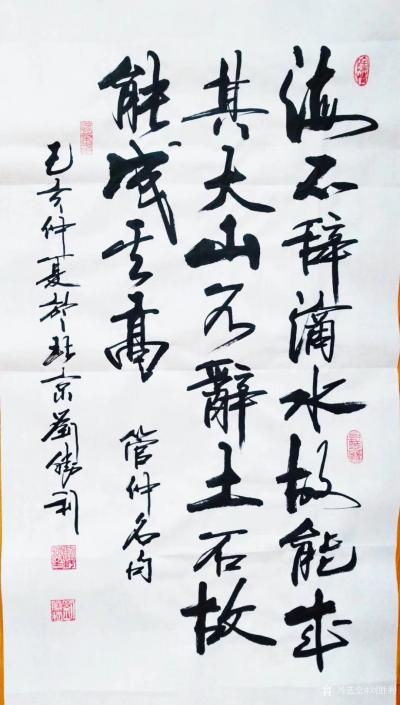 海不辞滴水故能成
其大山不辭土石故
能成其高
管仲名句
己亥仲夏於北京劉勝利